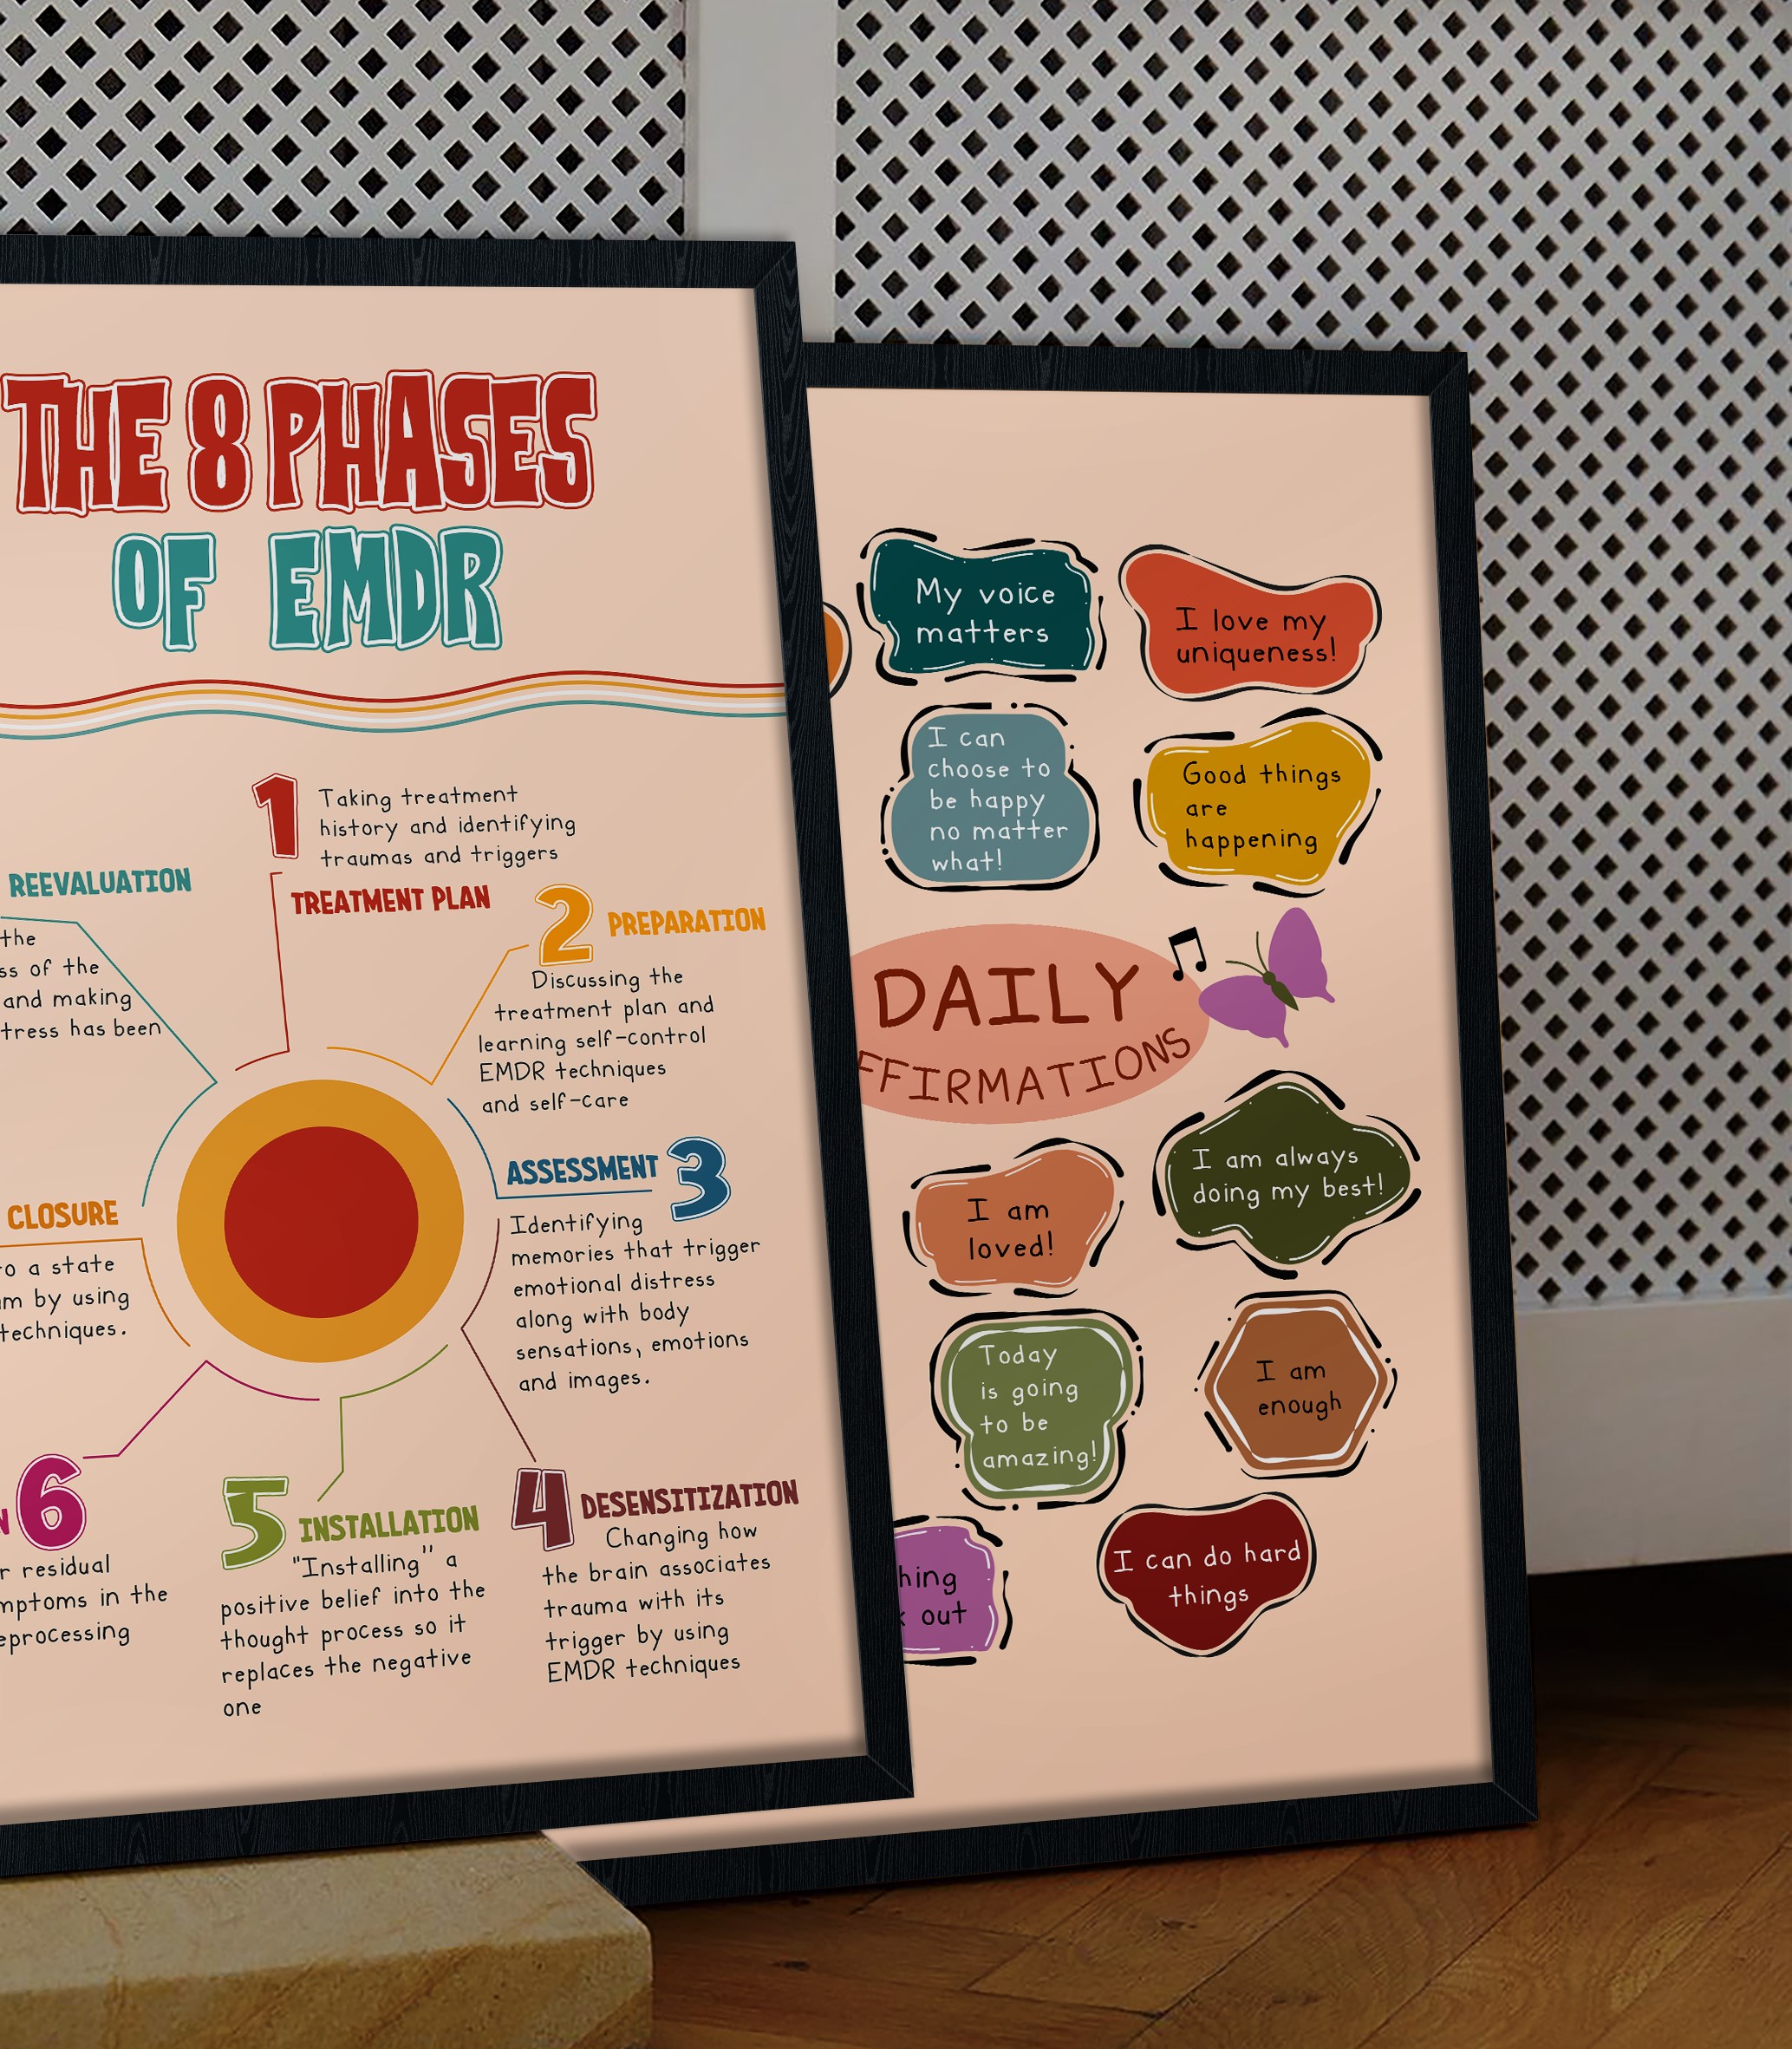 THE 8 PHASES
OF EMDR
1
Taking treatment
history and identifying
traumas and triggers
TREATMENT PLAN
2
PREPARATION
Discussing the
treatment plan and
learning self-control
EMDR techniques
and self-care
ASSESSMENT
3
Identifying
memories that trigger
emotional distress
along with body
sensations, emotions
and images.
4
DESENSITIZATION
Changing how
the brain associates
trauma with its
trigger by using
EMDR techniques
5
INSTALLATION
"Installing" a
positive belief into the
thought process so it
replaces the negative
one
6
residual
in the
CLOSURE
a state
by using
techniques.
REEVALUATION
the
of the
and making
has been
My voice
matters
I love my
uniqueness!
I can
choose to
be happy
no matter
what!
Good things
are
happening
DAILY
FFIRMATIONS
I am
loved!
I am always
doing my best!
Today
is going
to be
amazing!
I am
enough
hing
out
I can do hard
things